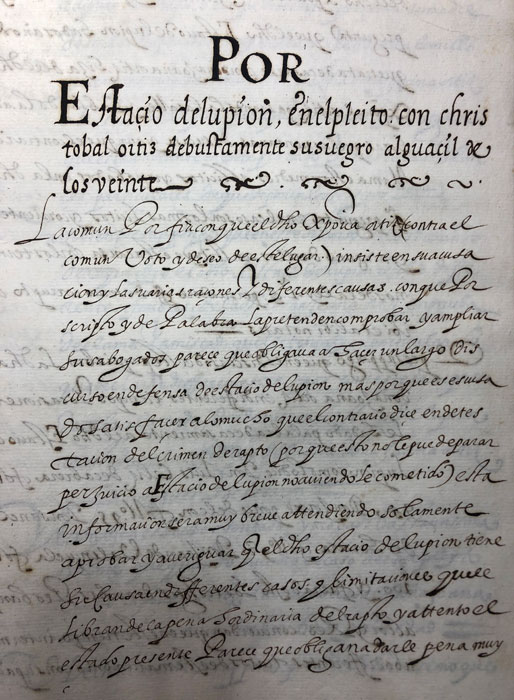 POR
EStaçio delupion, enelpleito con chris
tobal ortiz debustamente susuegro alguaçil de
los veinte
La comun Porfia conque eldho Xpoval ortiz (contra el
comun Voto y deseo deestelugar) insiste ensuacusa
cion y lasvarias razones y diferentes causas. conque Por
scripto y de Palabra la pretenden comprobar y ampliar
susabogados, pareçe queobligava a haçer unlargo dis
curso endefensa deestacio delupion mas porque es escusa
do satisfaçer alomucho queelcontrario diçe endetes
tacion delcrimen derapto (porque esto nolepuede parar
perjuicio aEstacio delupion noaviendole cometido) esta
informaçion sera muy breve attendiendo solamente
aprobar yaveriguar q eldho estacio delupion tiene
su causa en differentes casos, y limitaciones quele
libran delapena hordinaria delrapto, y attento el
estado presente Pareçe queobligan adarle pena muy